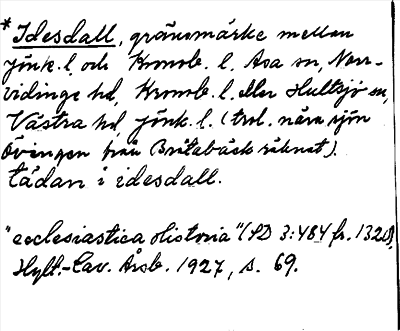 * Idesdall, gränsmärke mellan
Jönk. l. och Kronob. l. Asa sn, Norr-
vidinge hd, Kronob. l. eller Hultsjö sn,
Västra hd, Jönk. l. (trol. nära sjön
Övingen från Brittabäck räknat).
tädan i idesdall.
"ecclesiastica Historia" (SD 3:484 fr. 1320),
Hylt.-Cav. Årsb. 1927, s. 69.